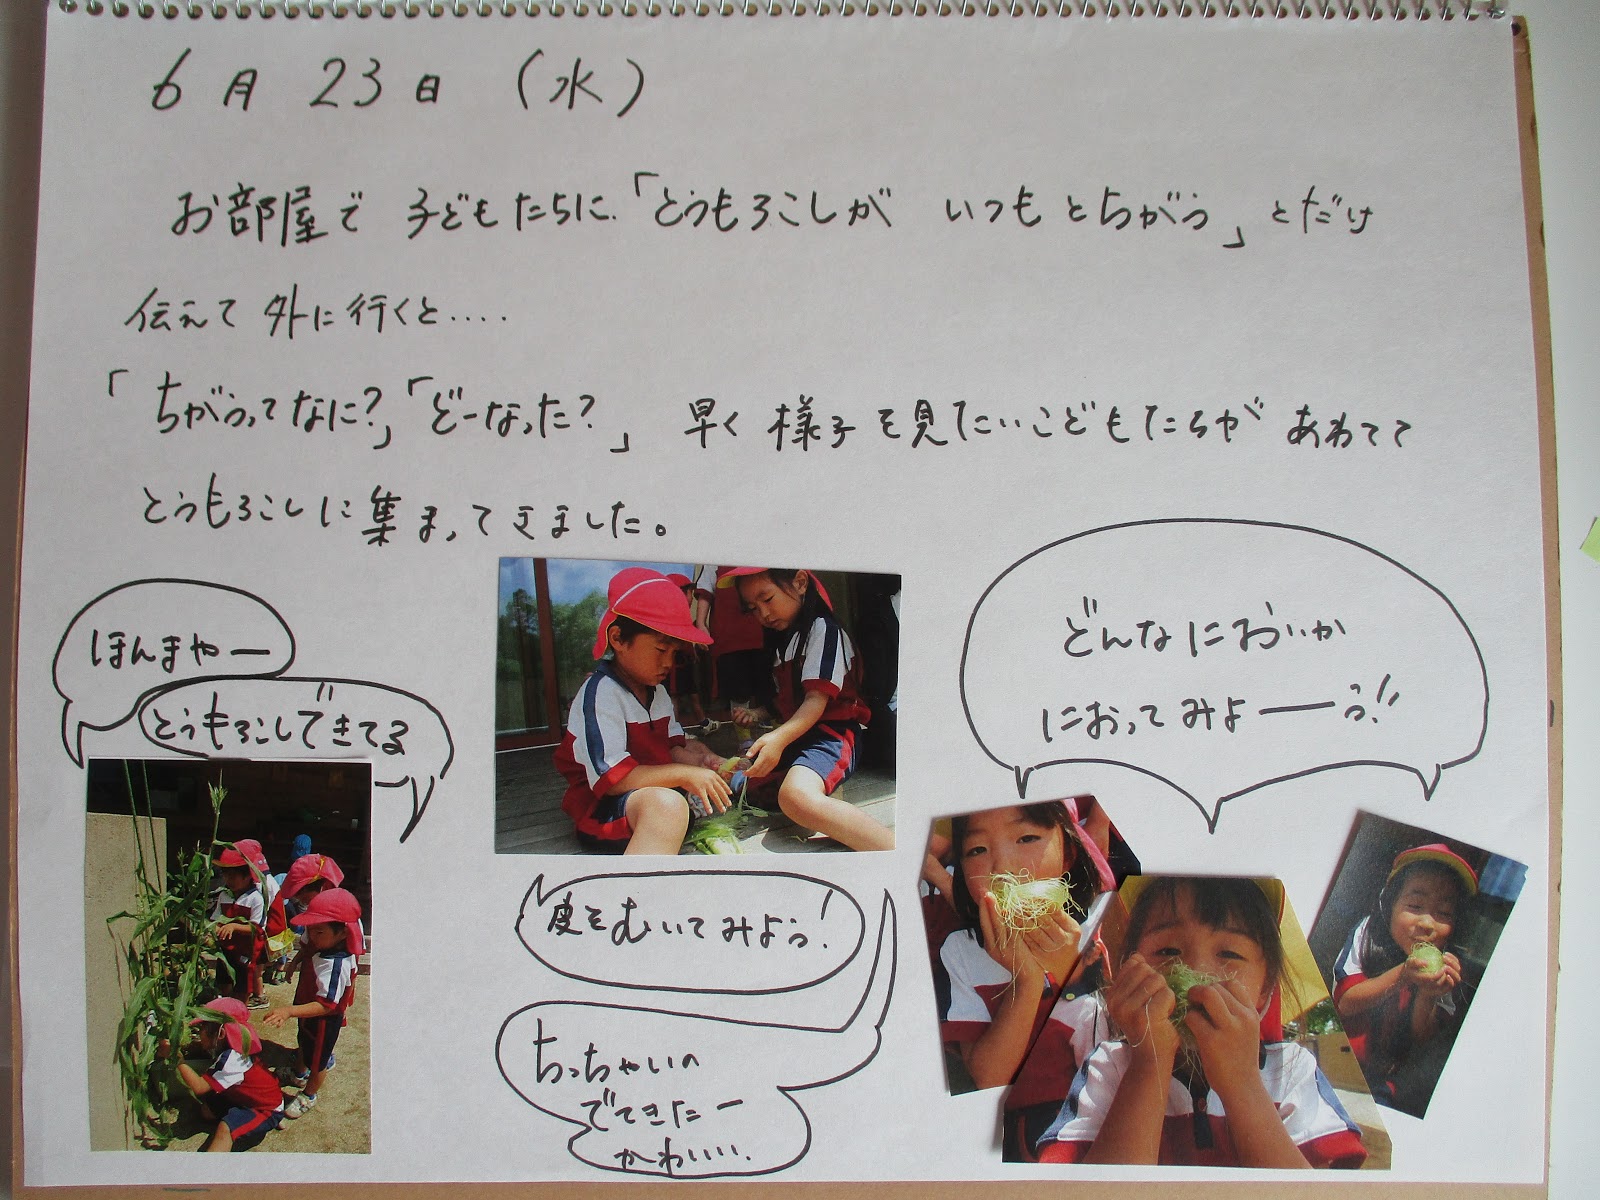 6月23日(水)
お部屋で子どもたちに、「とうもろこしが いつもとちがう」とだけ
伝えて外に行くと....
「ちがうってなに?」「どーなった?」早く様子を見たいこどもたちが あわてて
とうもろこしに集まってきました。
ほんまやー
とうもろこしできてる
皮をむいてみよう!
ちっちゃいの
でてきたー
かわいい..
どんなにおいか
におってみよーう!!